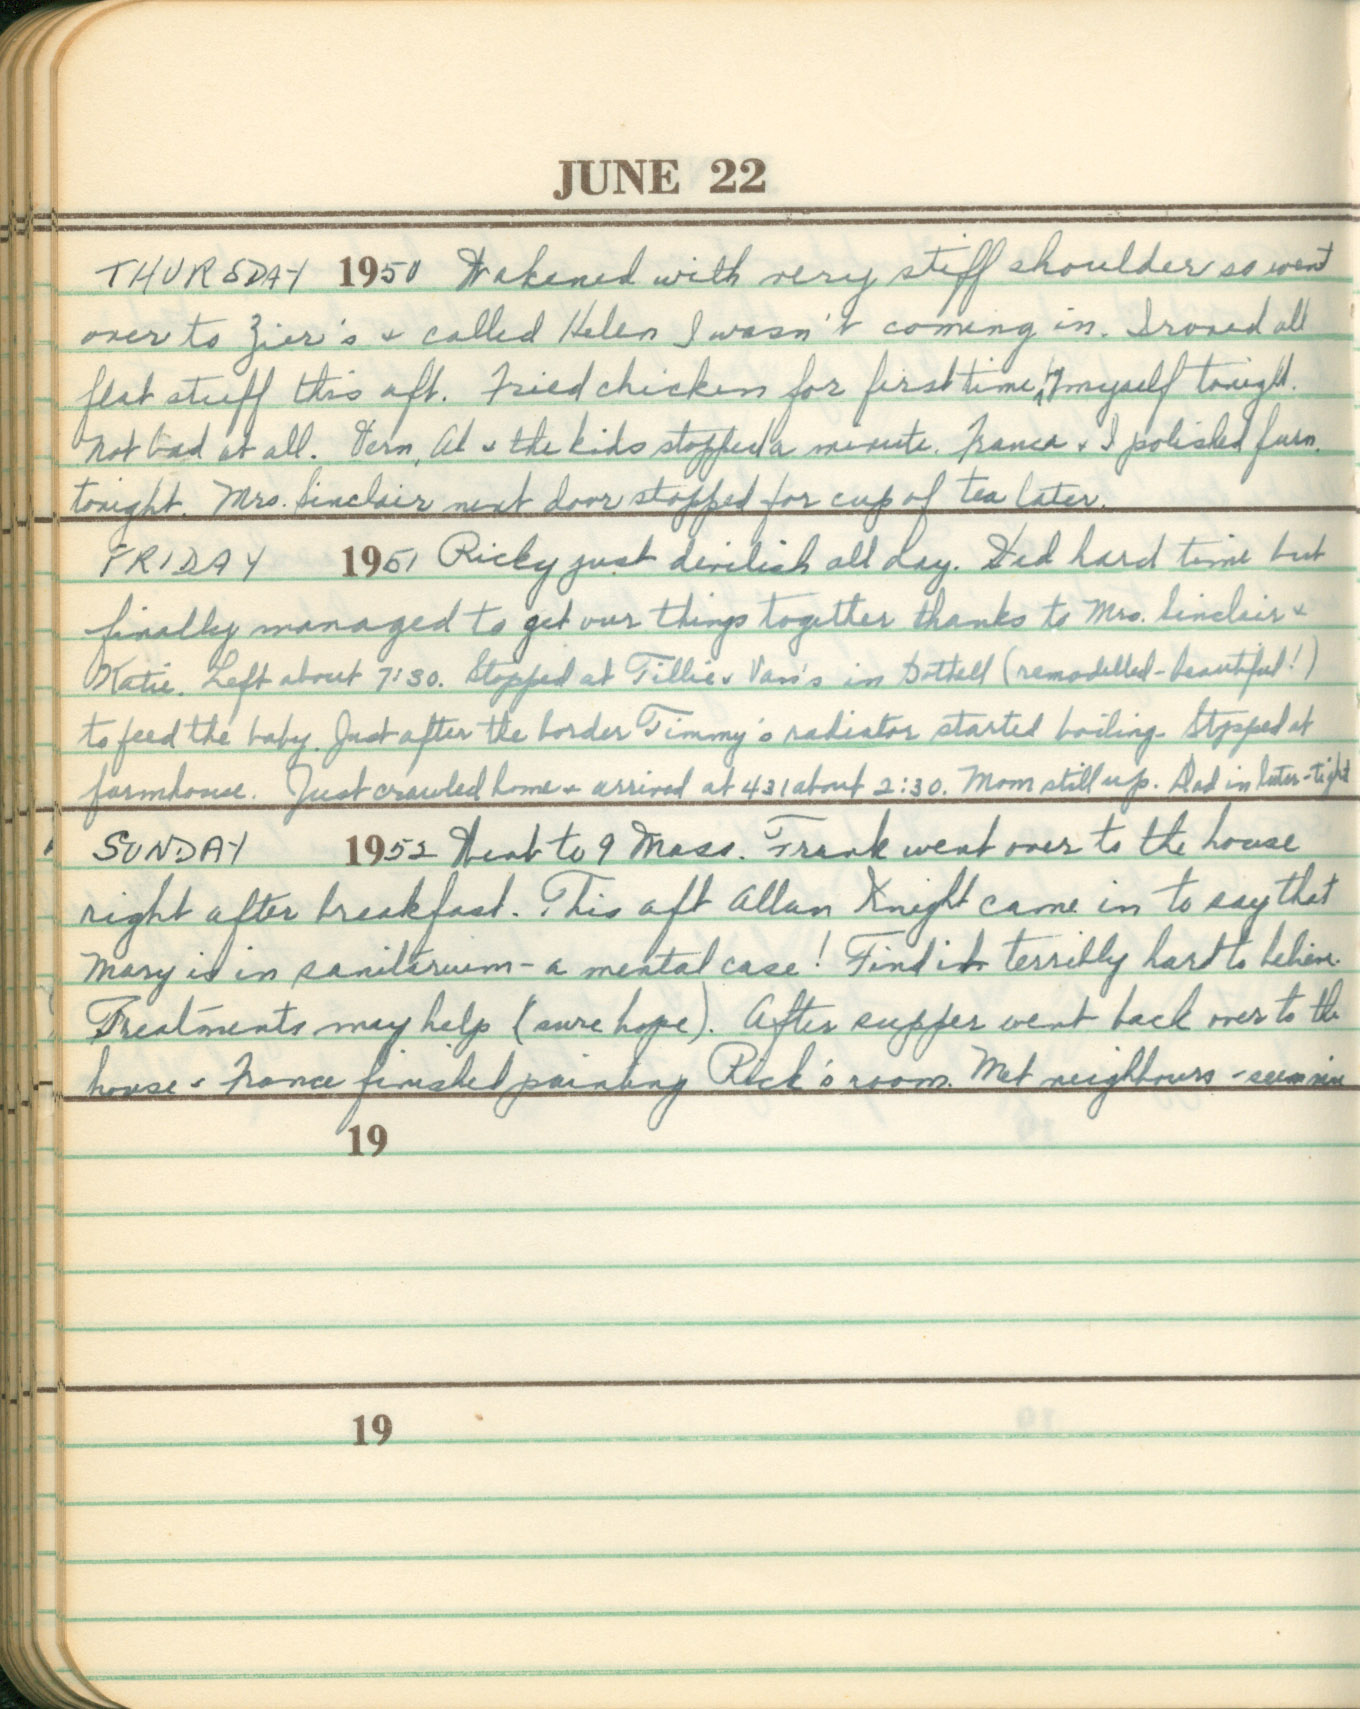 JUNE 22
THURSDAY 1950 Wakened with very stiff shoulder so went
over to Zier's & called Helen I wasn't coming in. Ironed all
flat stuff this aft. Fried chicken for first time by myself tonight.
Not bad at all. Vern, Al & the kids stopped a minute. France & I polished furn.
tonight. Mrs. Sinclair next door stopped for cup of tea later.
FRIDAY 1951 Ricky just devilish all day. Had hard time but
finally managed to get our things together thanks to Mrs. Sinclair &
Katie. Left about 7:30. Stopped at Tillie & Van's in (remodelled-beautiful!)
to feed the baby. Just after the border Timmy's radiator started boiling. Stopped at
farmhouse. Just crawled home & arrived at 431 about 2:30. Mom still up. Dad in later-tight
SUNDAY 1952 Went to 9 Mass. Frank went over to the house
right after breakfast. This aft Allan Knight came in to say that
Mary is in sanitarium - a mental case! Find it terribly hard to believe.
Treatments may help (sure hope). After supper went back over to the
house & France finished painting Rick's room. Met neighbours - seem nice
19
19